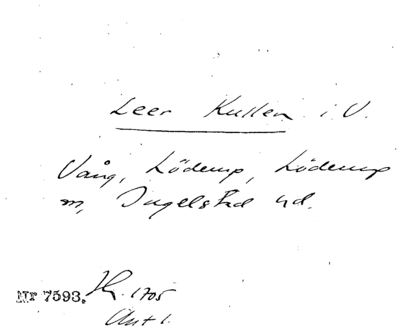 Leer Kullen i V.
Vång, Löderup, Löderup
m, Ingelstad hd.
Nr 7593. 1705
Ant 1.